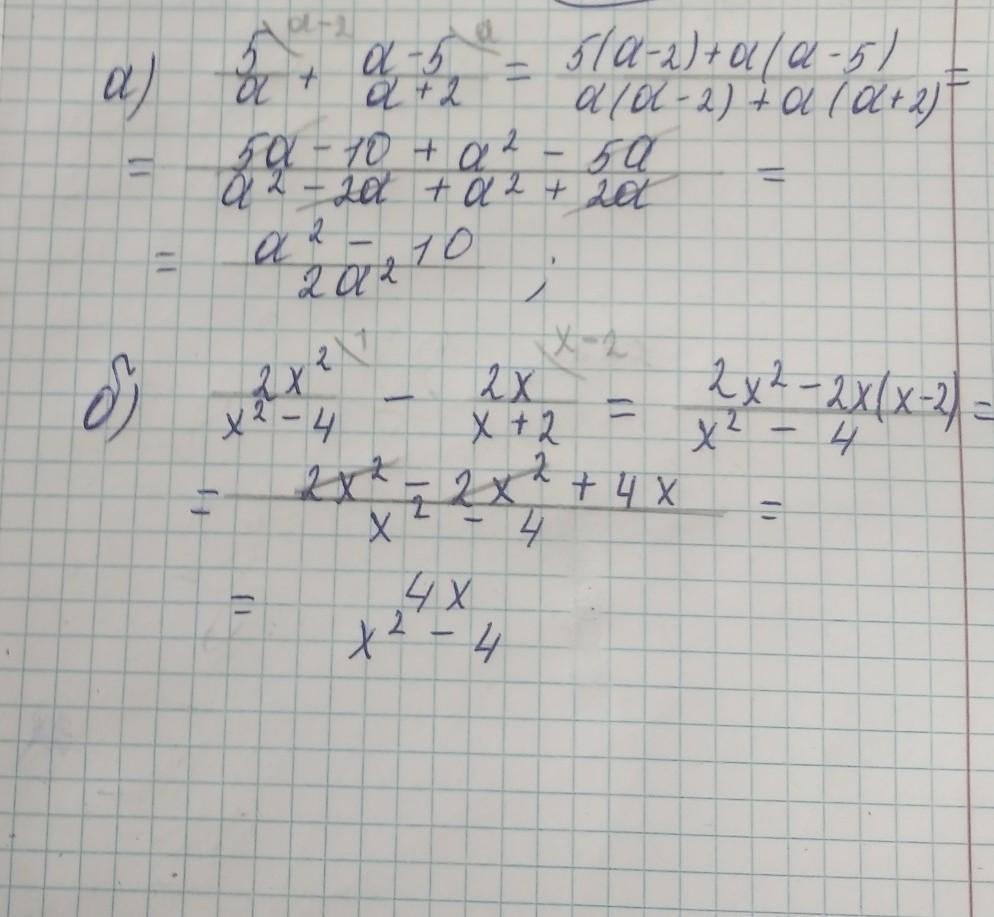 а) 5/a + (a-5)/(a+2) = (5(a-2)+a(a-5))/(a(a-2)+a(a+2)) =
a-2 a
= (5a-10+a²-5a)/(a²-2a+a²+2a) =
= (a²-10)/(2a²) ;
б) 2x²/(x²-4) - 2x/(x+2) = (2x²-2x(x-2))/(x²-4) =
1 x-2
= (2x²-2x²+4x)/(x²-4) =
= 4x/(x²-4)